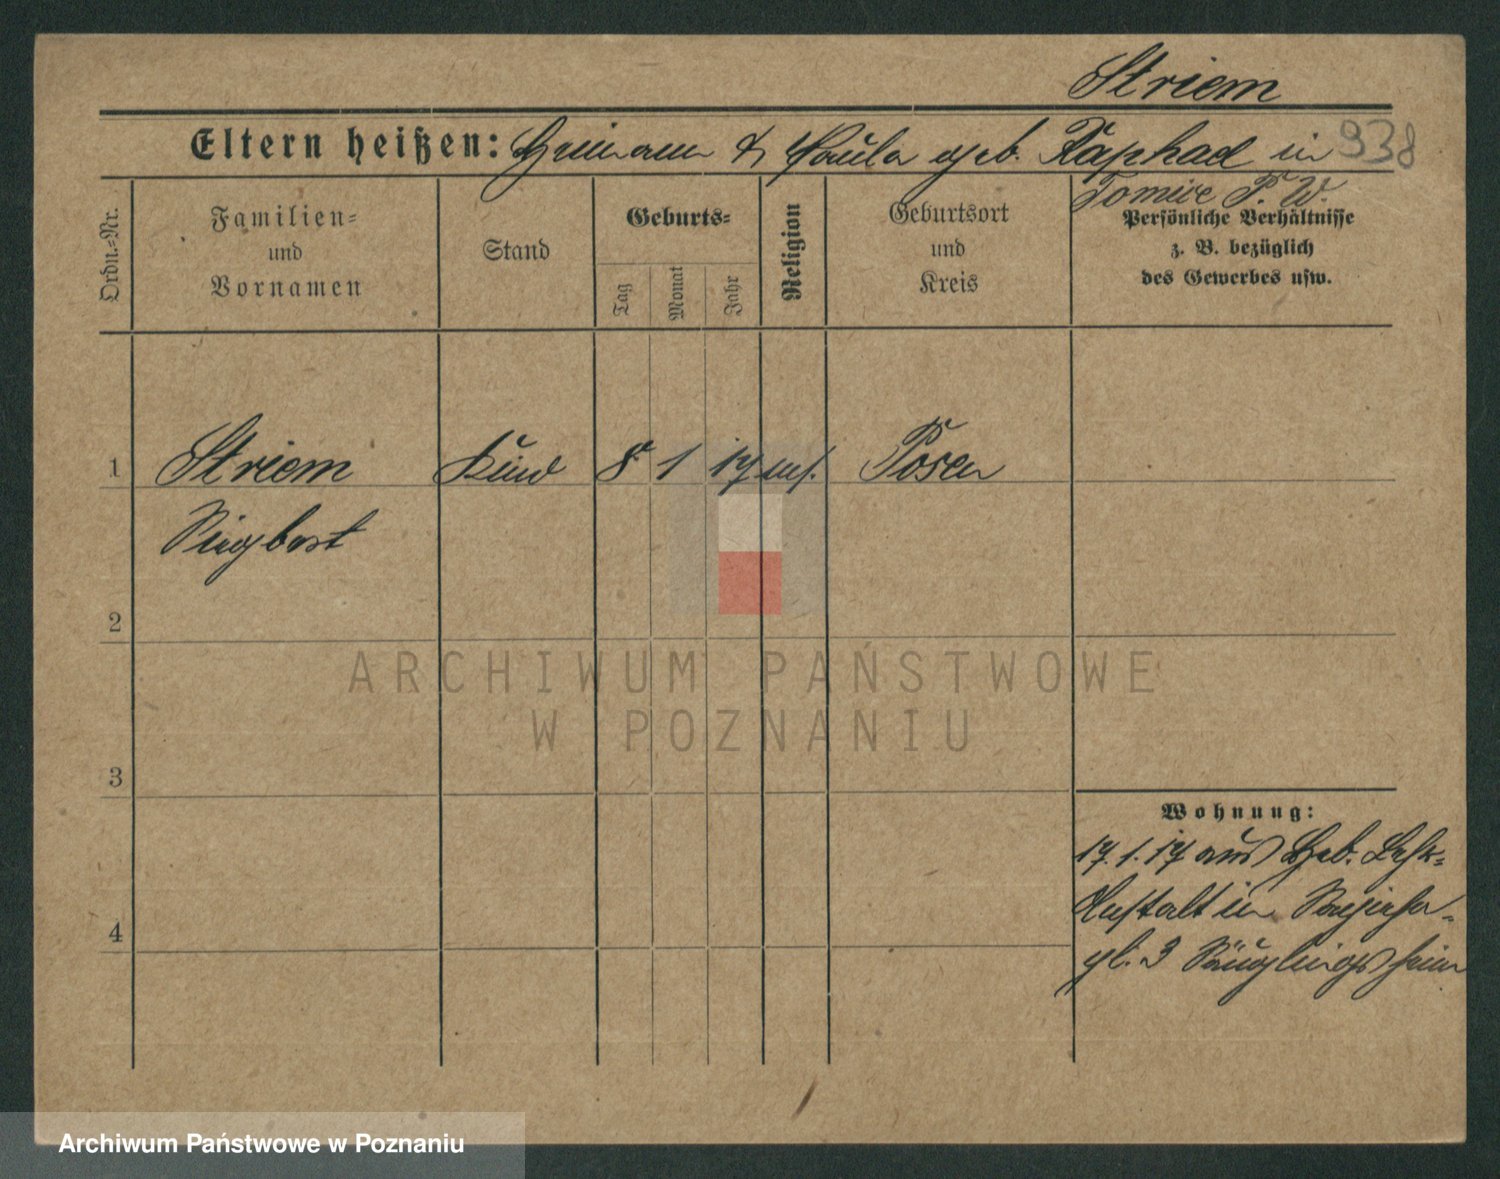 Striem
Eltern heißen: Heimann & Paula geb. Raphael in 938
Tomice P. W.
Ordn.=Nr.
Familien=
und
Vornamen
Stand
Geburts=
Tag
Monat
Jahr
Religion
Geburtsort
und
Kreis
Persönliche Verhältnisse
z. B. bezüglich
des Gewerbes usw.
1 Striem Kind 8 1 17 mos. Posen
Siegbert
2
3
4
Wohnung:
17.1.17 aus Heb.
Anstalt in
gl. 3 Säuglingsheim
ARCHIWUM PAŃSTWOWE
W POZNANIU
Archiwum Państwowe w Poznaniu